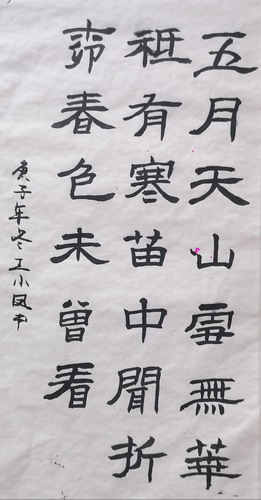 五月天山雪無華
祗有寒笛中聞折
柳春色未曾看
庚子年冬王小凤书